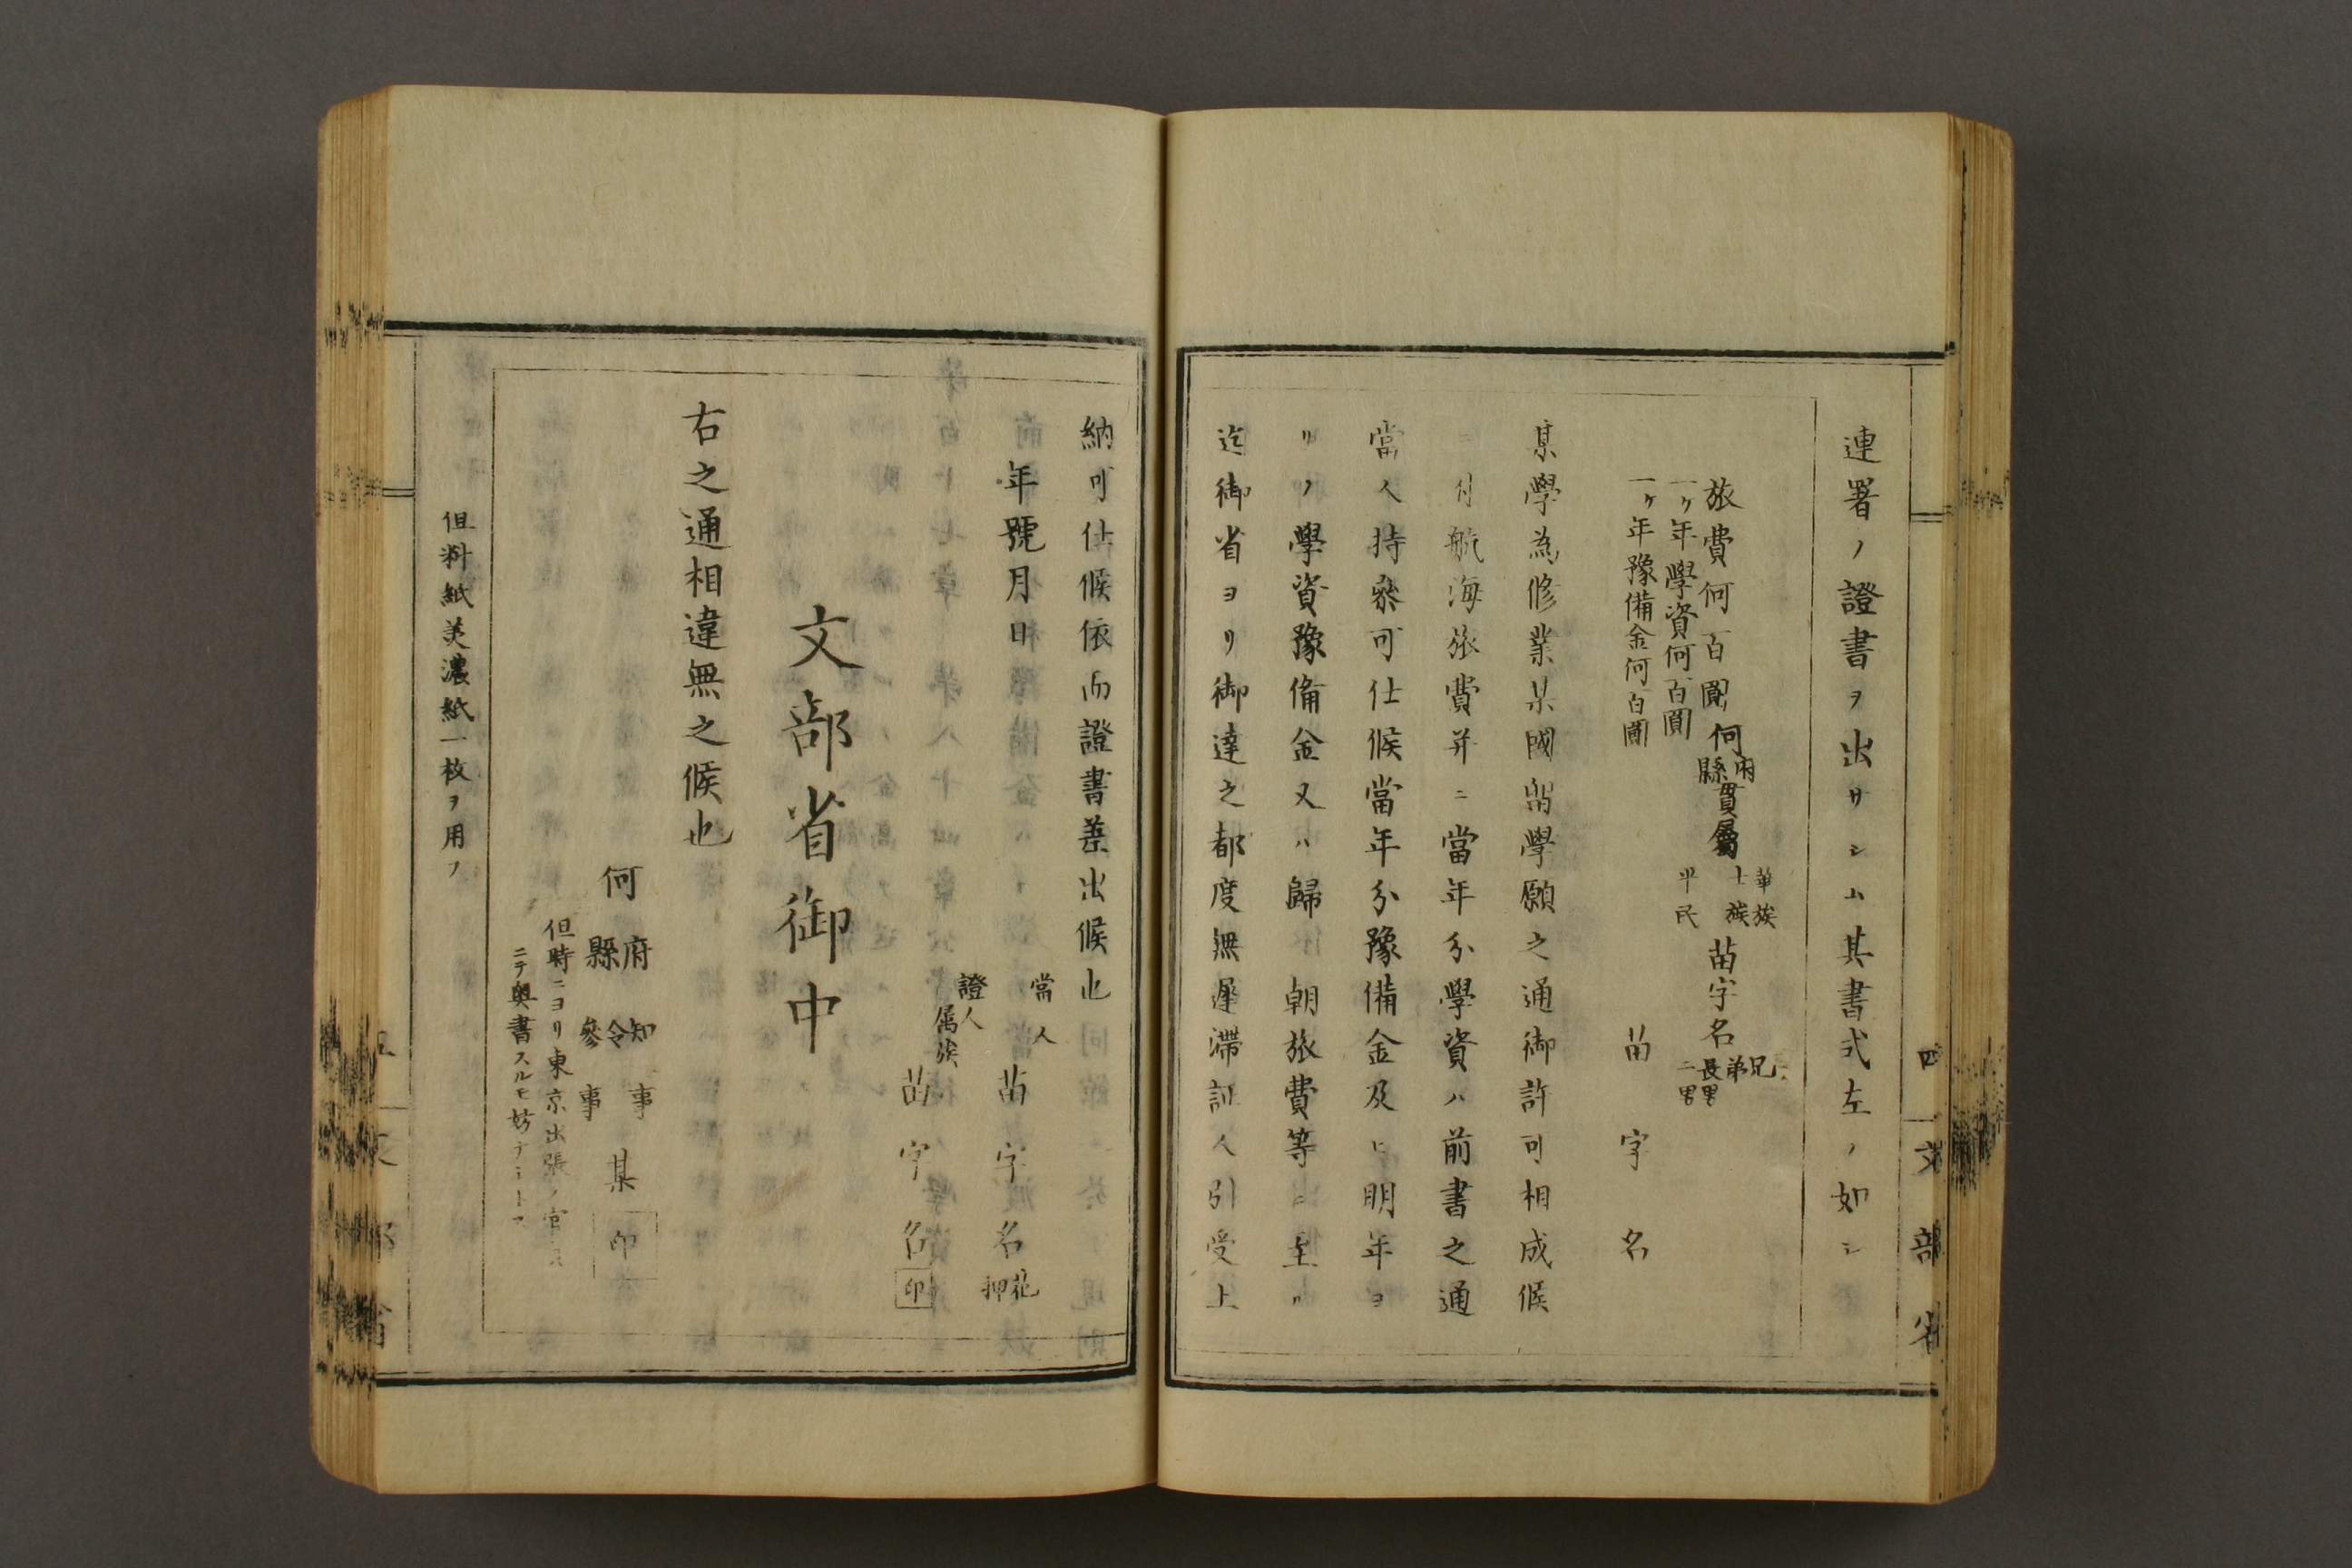 連署ノ證書ヲ出サシム其書式左ノ如シ
旅費何百圓
一ケ年學資何百圓
一ケ年豫備金何百圓
何府縣貫屬
華族
士族
平民
苗字名
兄
弟
長男
二男
苗字名
某學為修業某國留學願之通御許可相成候
ニ付航海旅費并ニ當年分學資ハ前書之通
當人持参可仕候當年分豫備金及ヒ明年ヨ
リノ學資豫備金又ハ歸朝旅費等ニ至リ
迄御省ヨリ御達之都度無遅滞証人引受上
四 文部省
納可仕候依而證書差出候也
年號月日
當人
苗字名花押
證人
属族
苗字名印
文部省御中
右之通相違無之候也
何府縣
知事
令
參事
某印
但時ニヨリ東京出張ノ官員
ニテ奥書スルモ妨ナシトス
但料紙美濃紙一枚ヲ用フ
五 文部省